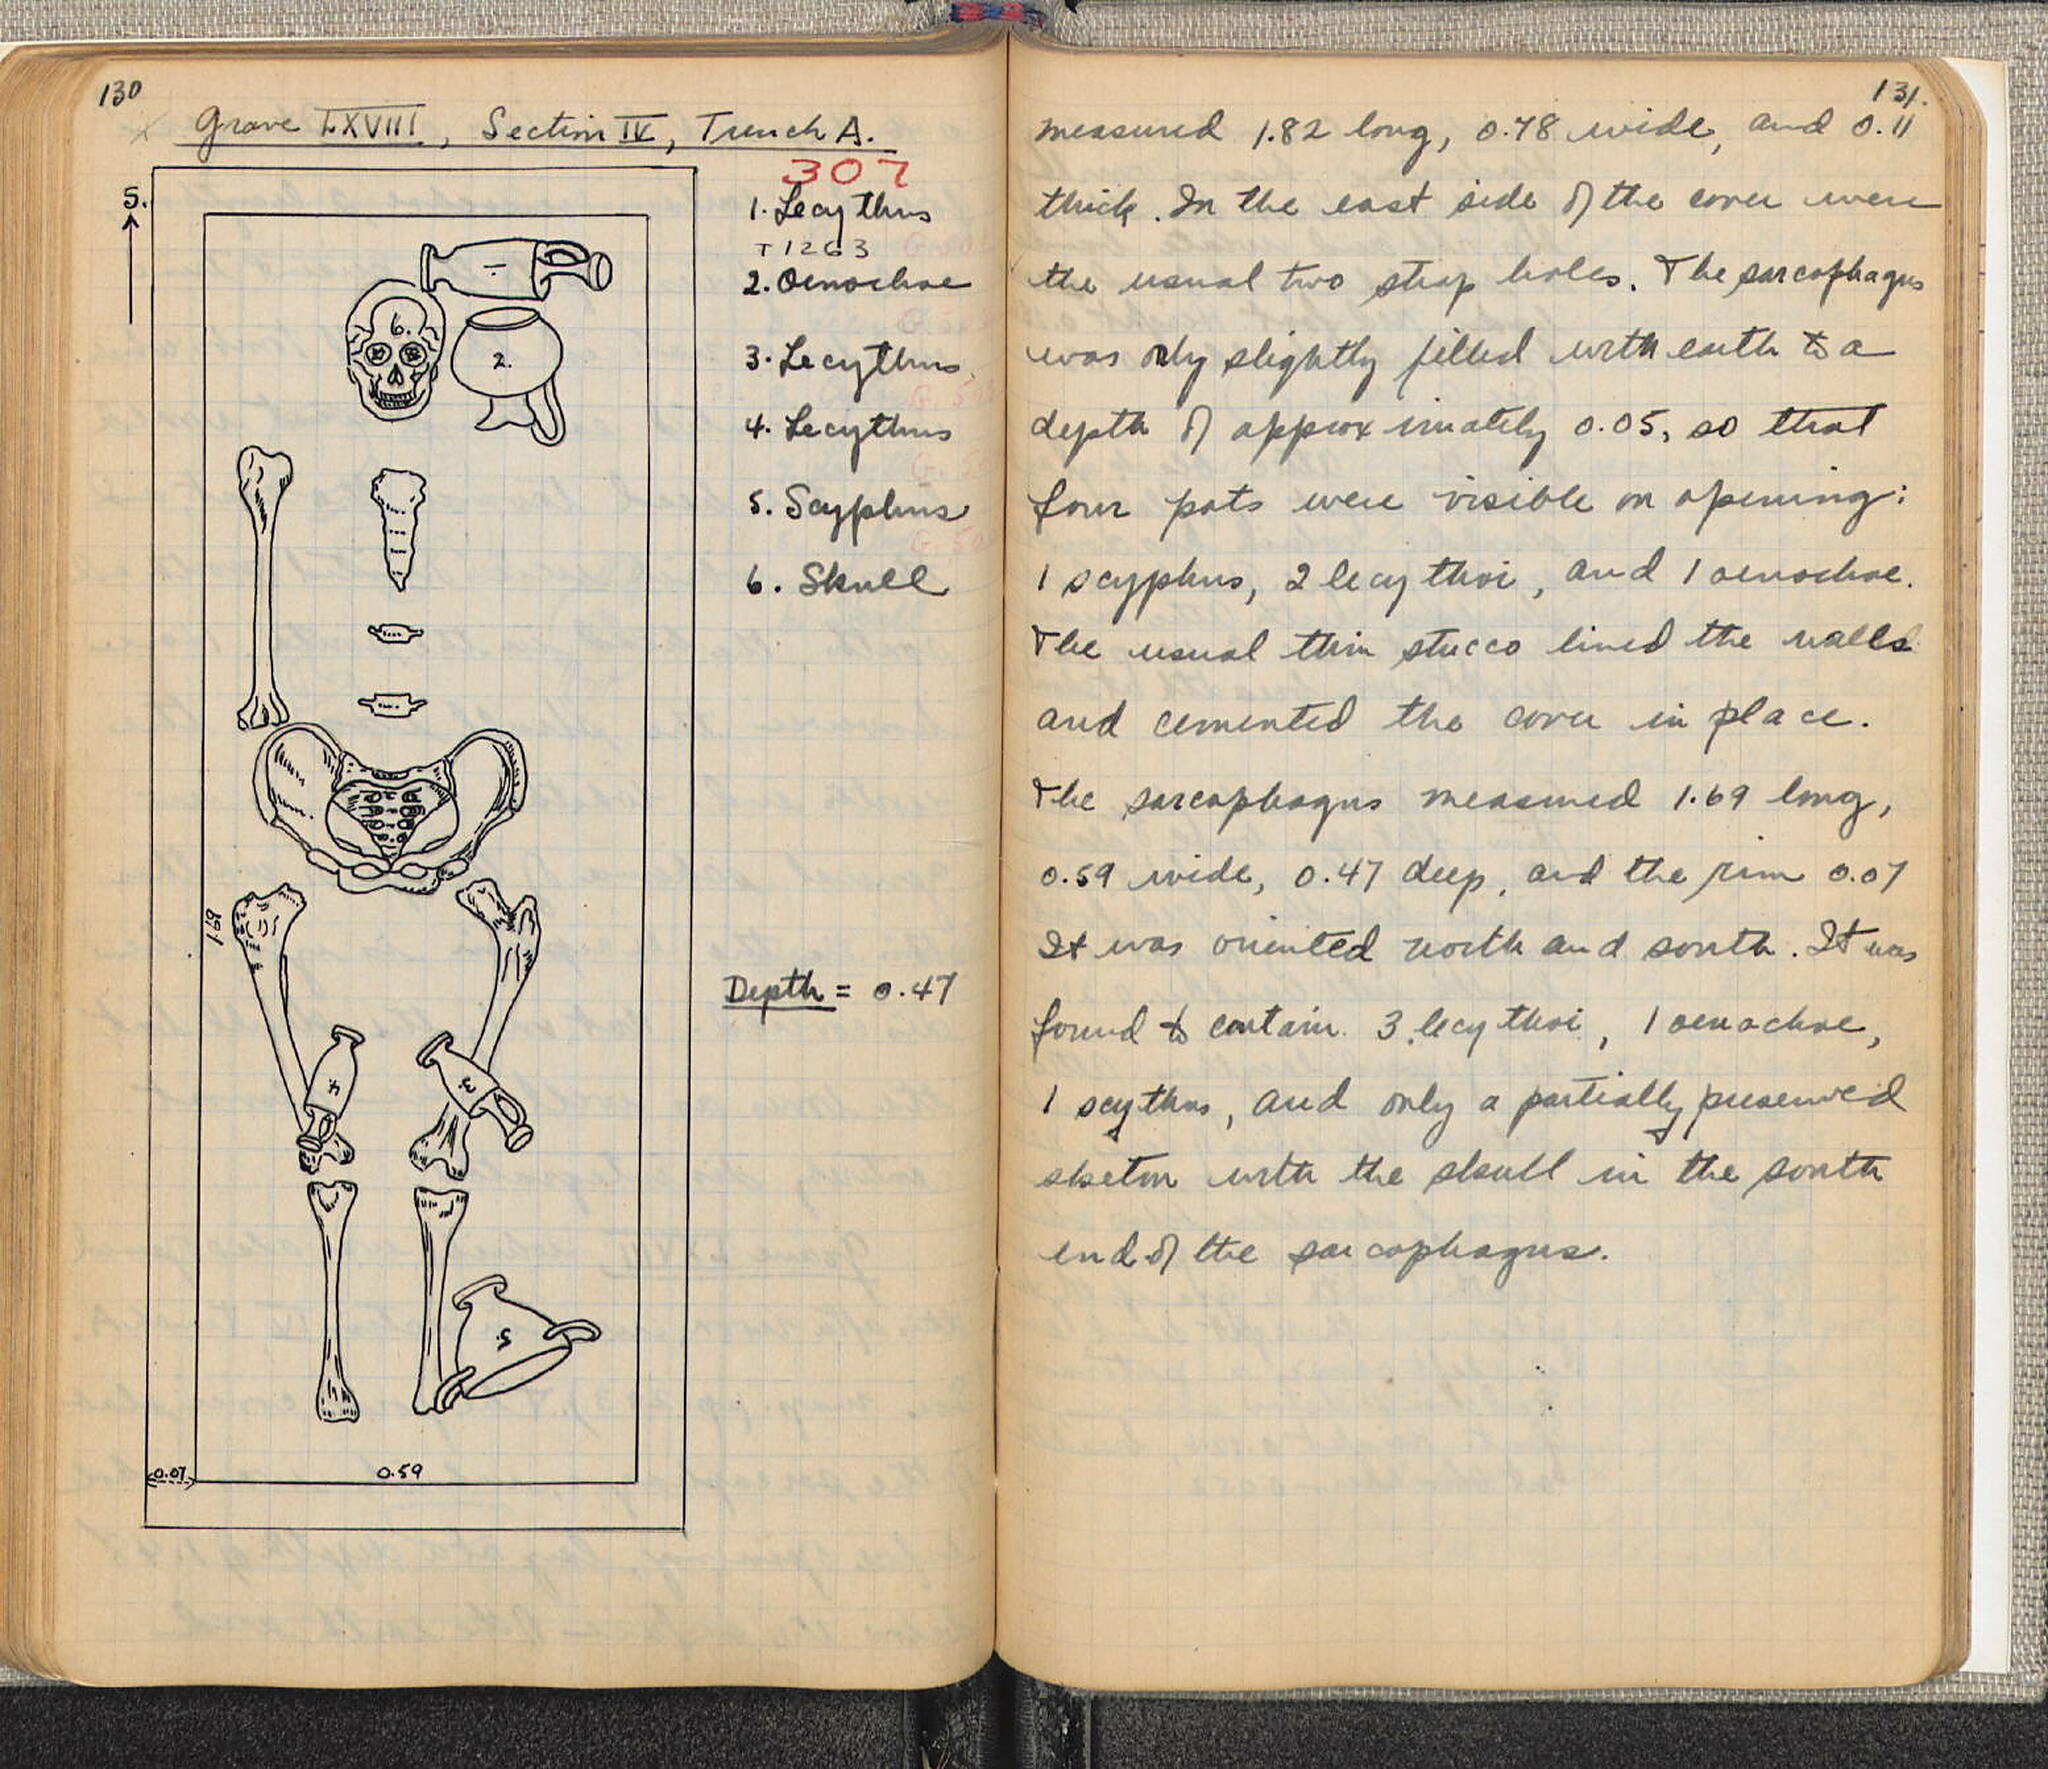 130
Grave LXVIII, Section IV, Trench A.
307
S.
1. Lecythus
T 1263
2. Oenochoe
3. Lecythus
4. Lecythus
5. Scyphus
6. Skull
1.
6.
2.
1.69
4
3
5
Depth = 0.47
0.07
0.59
131.
measured 1.82 long, 0.78 wide, and 0.11
thick. In the east side of the cover were
the usual two strap holes. The sarcophagus
was only slightly filled with earth to a
depth of approximately 0.05, so that
four pots were visible on opening:
1 scyphus, 2 lecythoi, and 1 oenochoe.
The usual thin stucco lined the walls
and cemented the cover in place.
The sarcophagus measured 1.69 long,
0.59 wide, 0.47 deep, and the rim 0.07
It was oriented north and south. It was
found to contain 3 lecythoi, 1 oenochoe,
1 scythus, and only a partially preserved
sketon with the skull in the south
end of the sarcophagus.